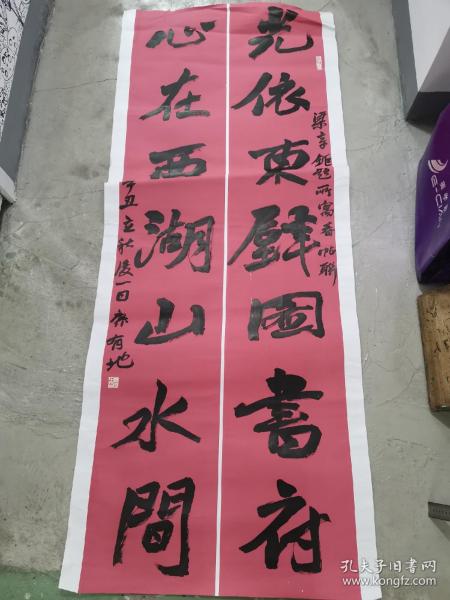 光依東壁圖書府
心在西湖山水間
梁章鉅題所寓春帖聯
丁丑立秋後一日 有地
孔夫子旧书网
www.kongfz.com